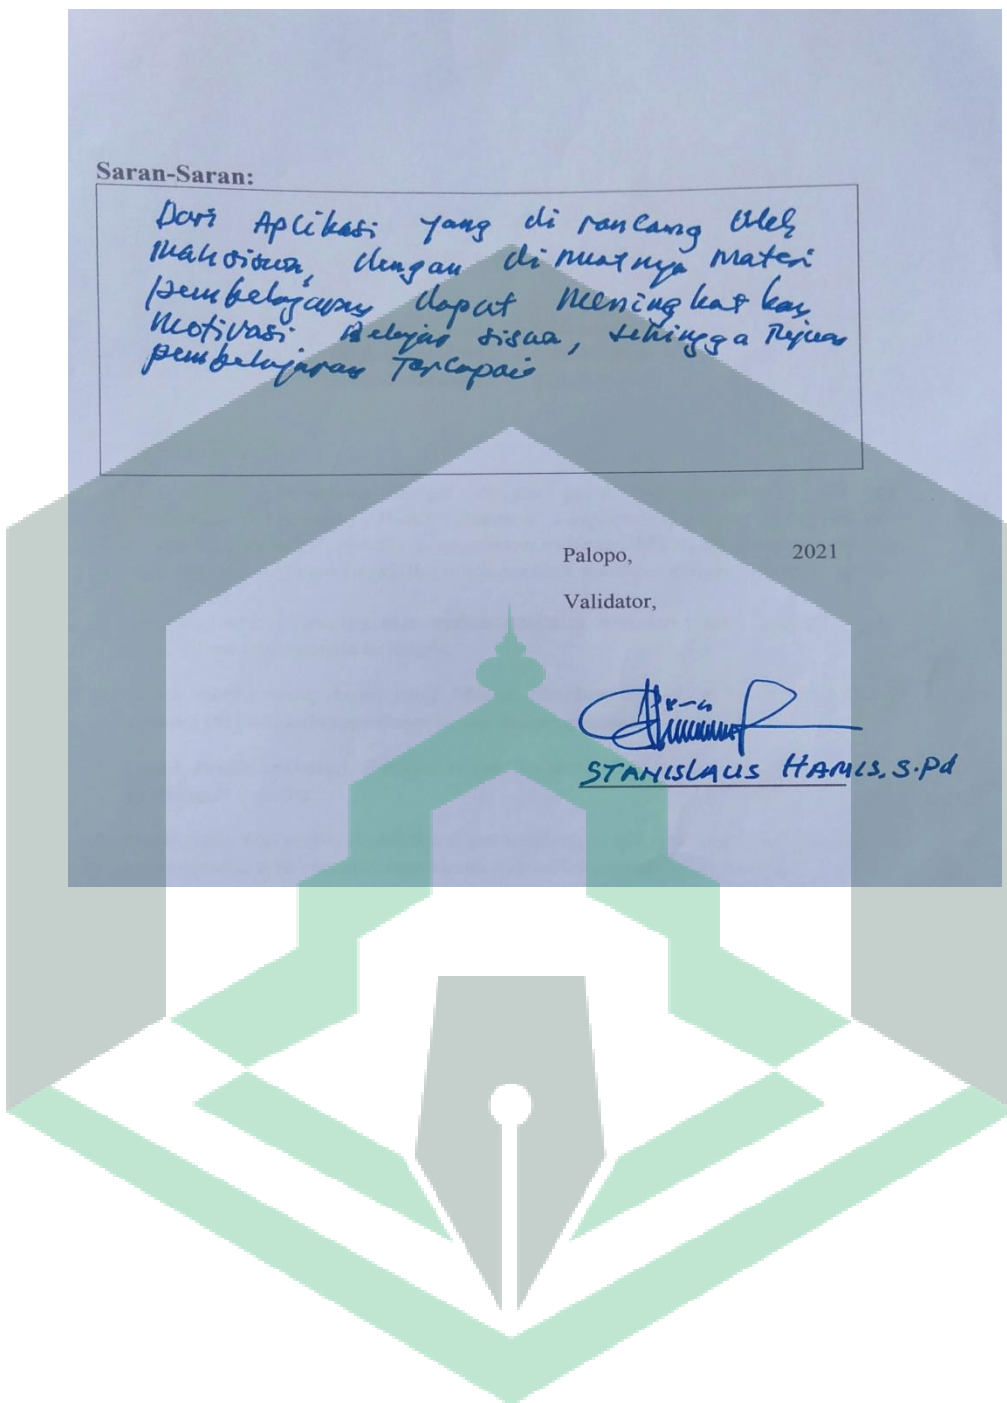 Saran-Saran:
Dari Aplikasi yang di rancang oleh
mahasiswa, dengan di muatnya materi
pembelajaran dapat meningkatkan
motivasi Belajar siswa, sehingga Tujuan
pembelajaran Tercapai
Palopo, 2021
Validator,
STANISLAUS HAMIS, S.Pd